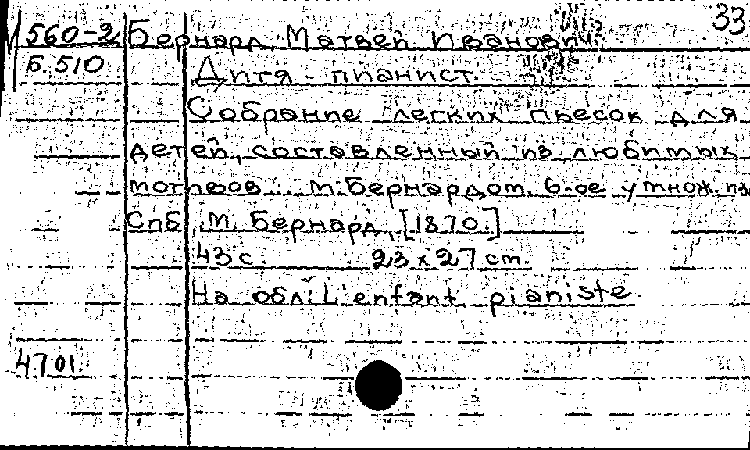 33
560-2 Бернард, Матвей Иванович
Б.510 Дитя - пианист.
Собрание легких пьесок для
детей, составленный из любимых
мотивов... М. Бернардом. 6-ое умнож. из
Спб, М. Бернард, [1870.]
43 с. 23 x 27 cm.
На обл: L'enfant pianiste.
4701